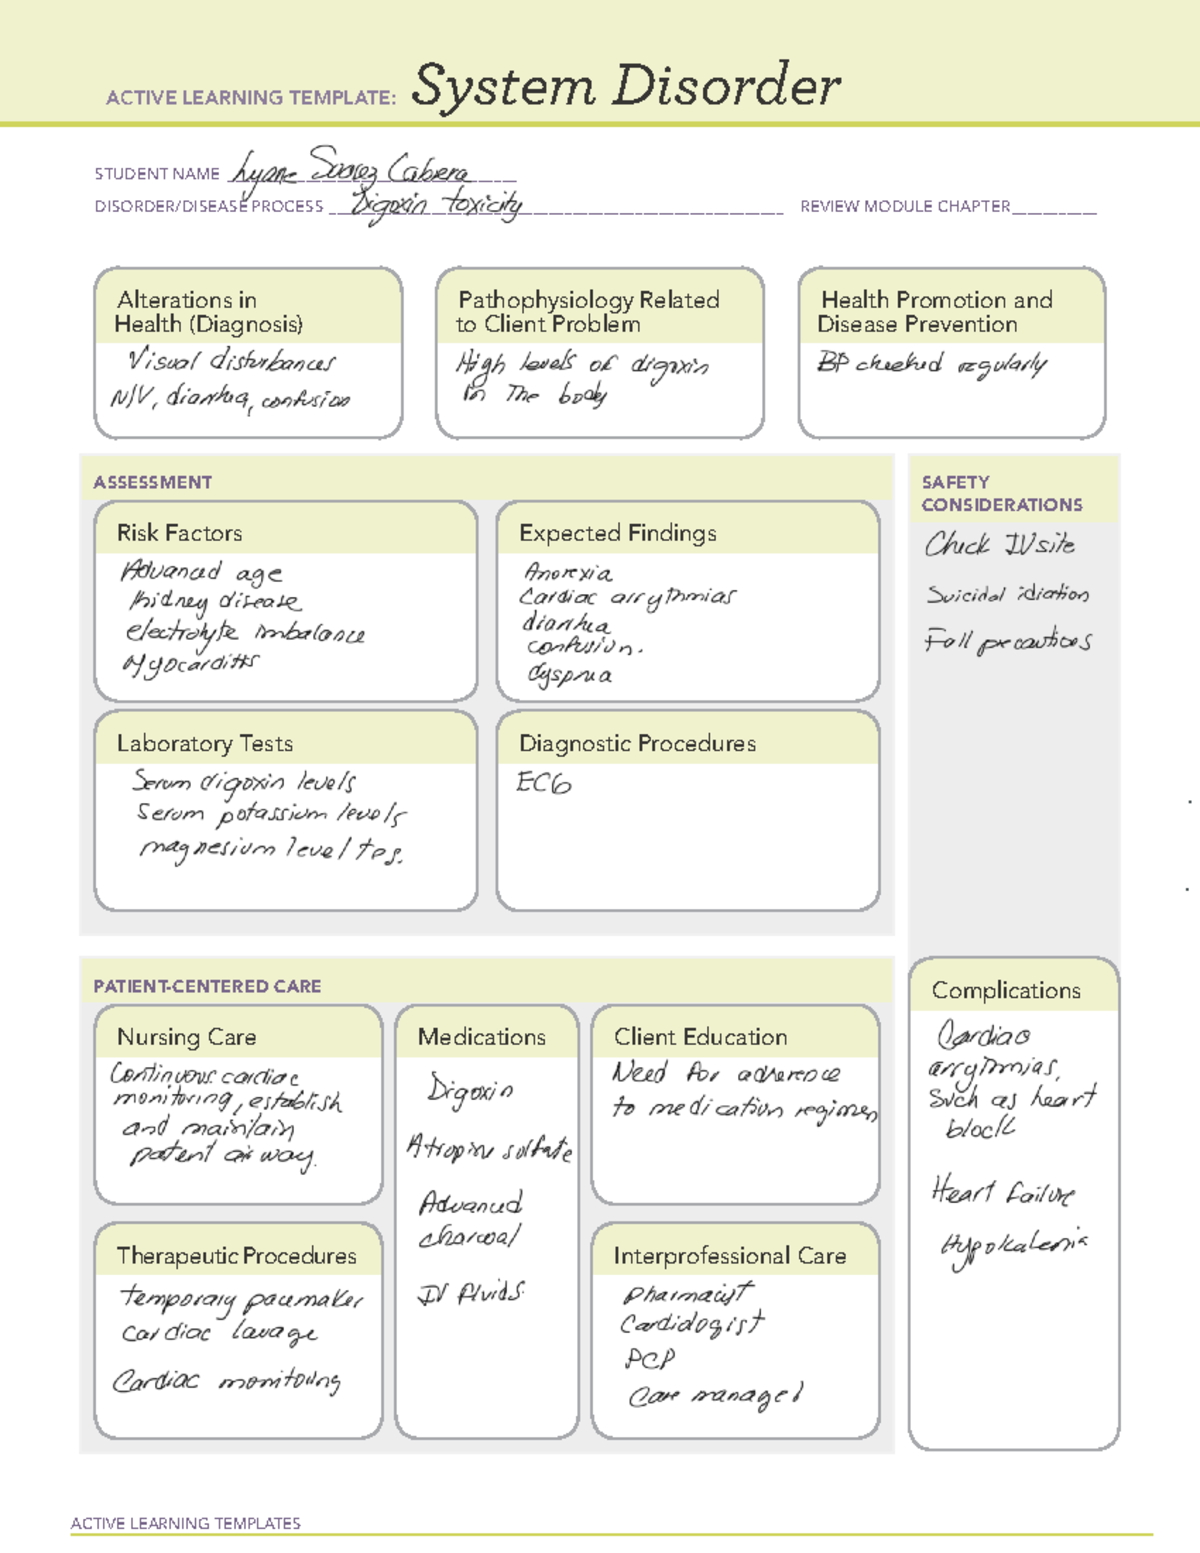 ACTIVE LEARNING TEMPLATE: System Disorder
STUDENT NAME Lyane Suarez Cabrera
DISORDER/DISEASE PROCESS Digoxin toxicity REVIEW MODULE CHAPTER
Alterations in
Health (Diagnosis)
Visual disturbances
N/V, diarrhea, confusion
Pathophysiology Related
to Client Problem
High levels of digoxin
in The body
Health Promotion and
Disease Prevention
BP checked regularly
ASSESSMENT
Risk Factors
Advanced age
kidney disease
electrolyte imbalance
Myocarditis
Expected Findings
Anorexia
Cardiac arrythmias
diarrhea
confusion.
dyspnea
Laboratory Tests
Serum digoxin levels
Serum potassium levels
magnesium level tes.
Diagnostic Procedures
ECG
SAFETY
CONSIDERATIONS
Check IV site
Suicidal idiation
Fall precautions
PATIENT-CENTERED CARE
Nursing Care
Continuous cardiac
monitoring, establish
and maintain
patent airway.
Medications
Digoxin
Atropine sulfate
Advanced
charcoal
IV fluids
Client Education
Need for adherence
to medication regimen
Therapeutic Procedures
temporary pacemaker
cardiac lavage
Cardiac monitoring
Interprofessional Care
pharmacist
Cardiologist
PCP
Care manager
Complications
Cardiac
arrythmias,
Such as heart
block
Heart failure
Hypokalemia
ACTIVE LEARNING TEMPLATES